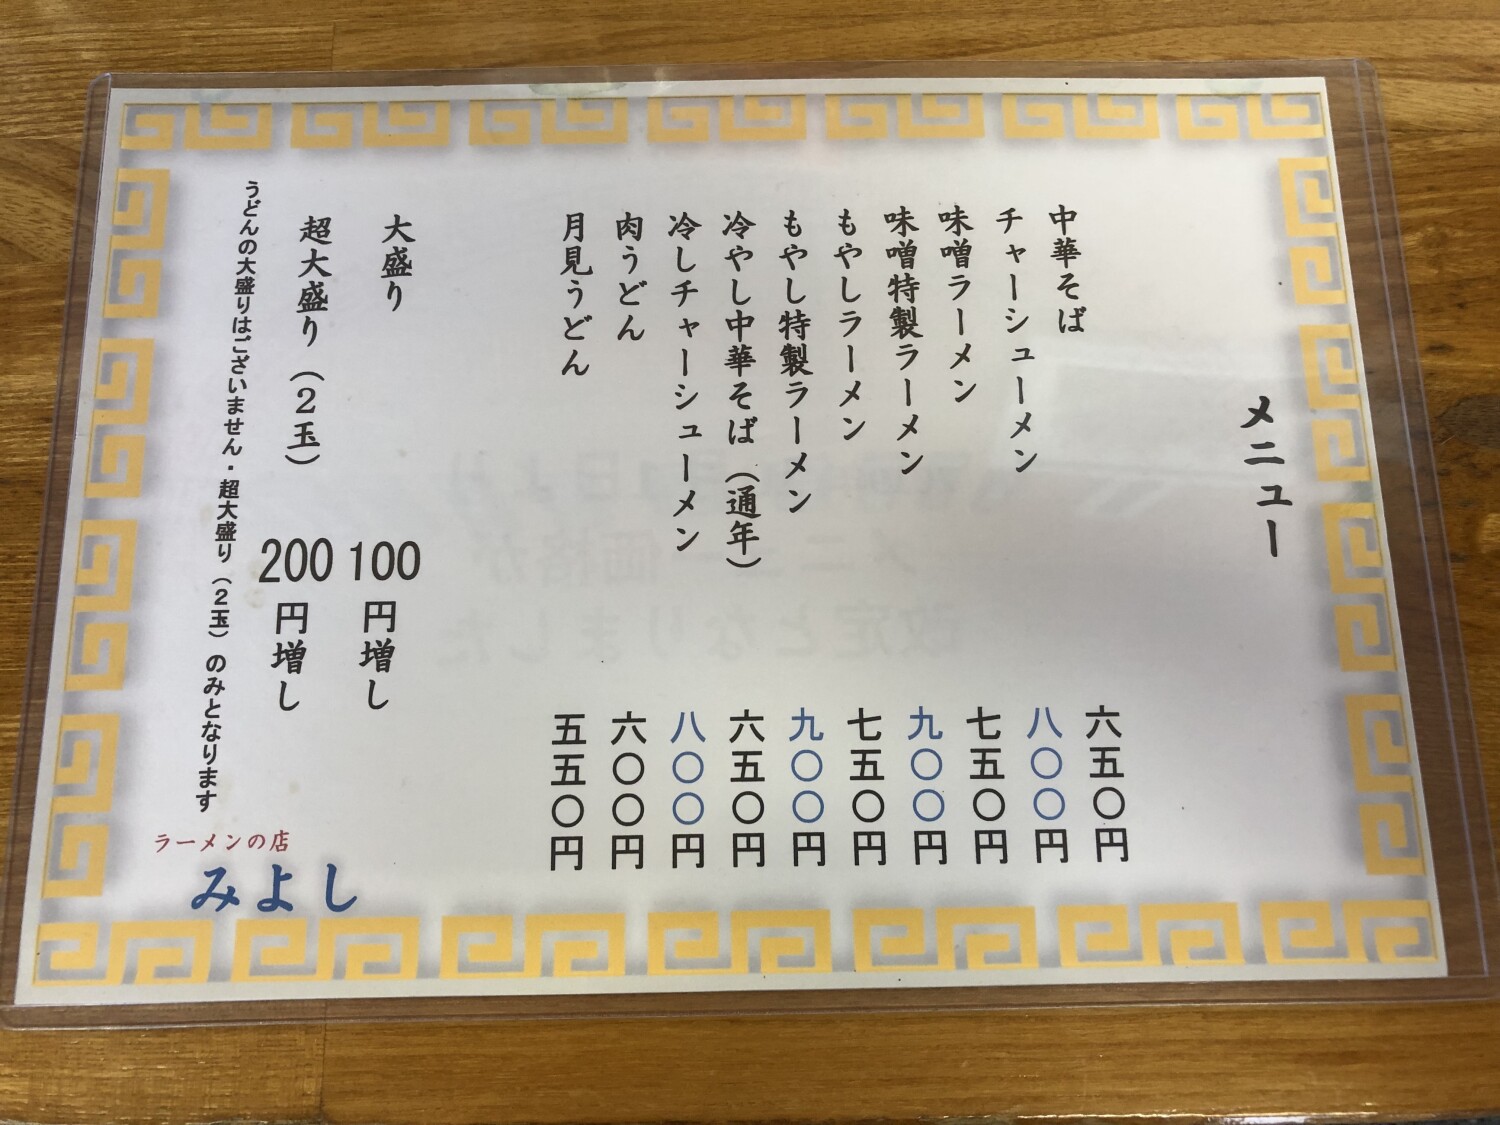 メニュー
中華そば 六五〇円
チャーシューメン 八〇〇円
味噌ラーメン 七五〇円
味噌特製ラーメン 九〇〇円
もやしラーメン 七五〇円
もやし特製ラーメン 九〇〇円
冷やし中華そば（通年） 六五〇円
冷しチャーシューメン 八〇〇円
肉うどん 六〇〇円
月見うどん 五五〇円
大盛り 100円増し
超大盛り（２玉） 200円増し
うどんの大盛りはございません・超大盛り（２玉）のみとなります
ラーメンの店
みよし